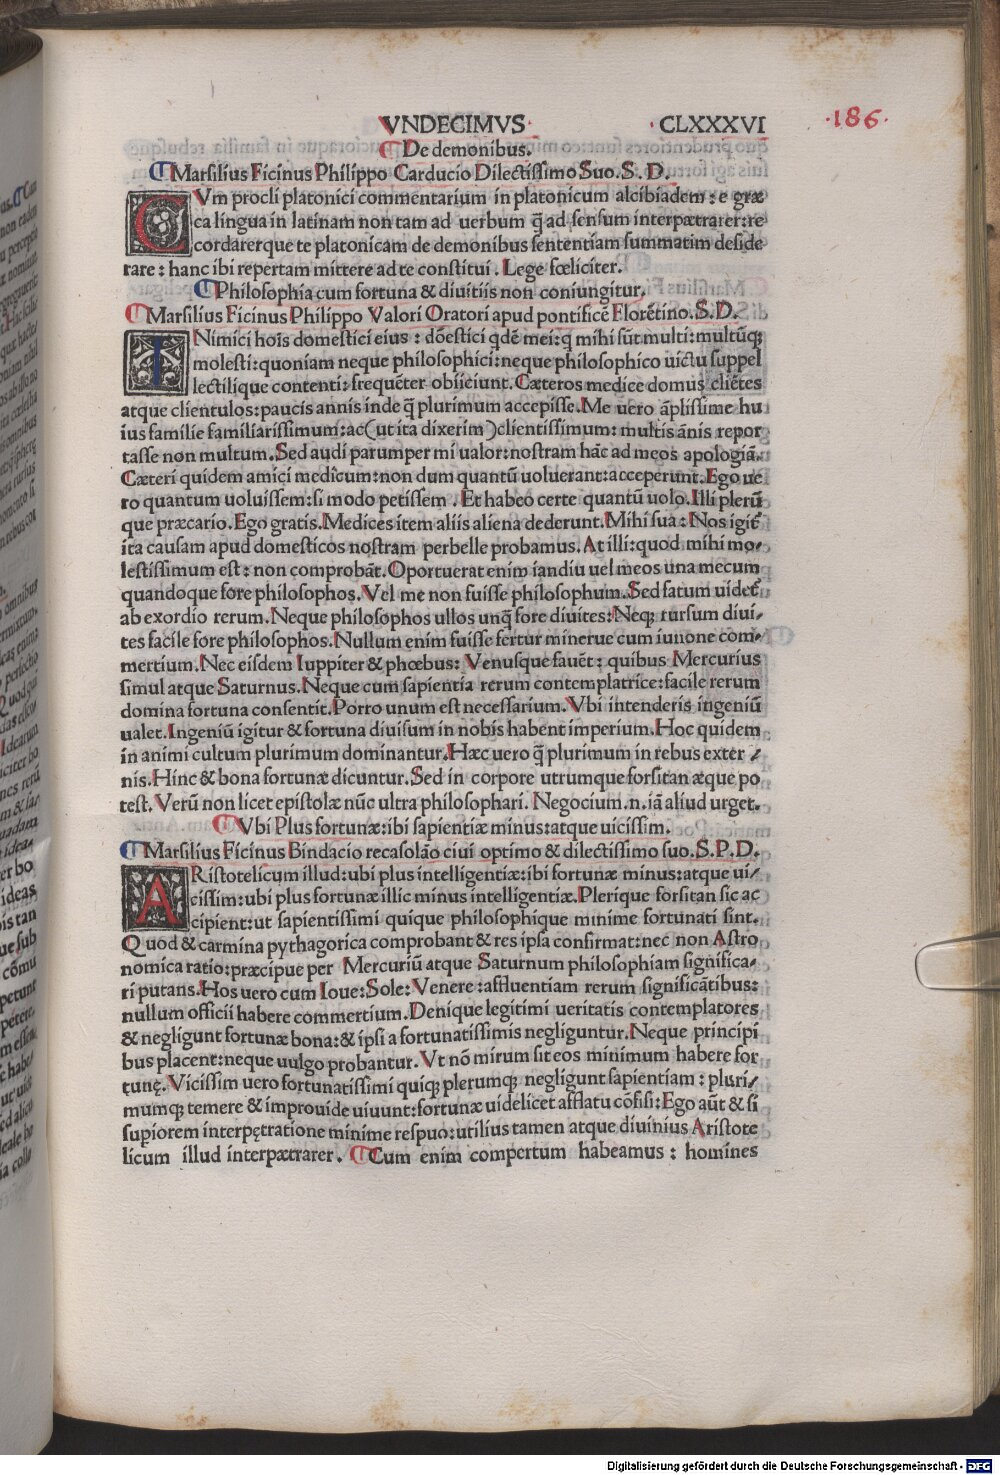 VNDECIMVS · · CLXXXVI ·186·
De demonibus.
Marſilius Ficinus Philippo Carducio Dilectiſſimo Suo. S. D.
CVm procli platonici commentarium in platonicum alcibiadem : e græ
ca lingua in latinam non tam ad uerbum q̃ ad ſenſum interpætrarer: re
cordarerque te platonicam de demonibus ſententiam ſummatim deſide
rare : hanc ibi repertam mittere ad te conſtitui . Lege fœliciter.
Philoſophia cum fortuna & diuitiis non coniungitur.
Marſilius Ficinus Philippo Valori Oratori apud pontificẽ Florẽtino. S. D.
INimici hoĩs domeſtici eius : dõeſtici qdẽ mei: q mihi ſũt multi: multũq;
moleſti: quoniam neque philoſophici: neque philoſophico uictu ſuppel
lectilique contenti: frequẽter obiiciunt. Cæteros medice domus cliẽtes
atque clientulos: paucis annis inde q̃ plurimum accepiſſe. Me uero ãpliſſime hu
ius familie familiariſſimum: ac(ut ita dixerim )clientiſſimum: multis ãnis repor
taſſe non multum. Sed audi parumper mi ualor: noſtram hãc ad meos apologiã.
Cæteri quidem amici medicum: non dum quantũ uoluerant: acceperunt. Ego ue
ro quantum uoluiſſem: ſi modo petiſſem . Et habeo certe quantũ uolo. Illi plerũ
que præcario. Ego gratis. Medices item aliis aliena dederunt. Mihi ſua : Nos igit̃
ita cauſam apud domeſticos noſtram perbelle probamus. At illi: quod mihi mo⸗
leſtiſſimum eſt : non comprobãt. Oportuerat enim iandiu uel meos una mecum
quandoque fore philoſophos. Vel me non fuiſſe philoſophum. Sed fatum uidet̃
ab exordio rerum. Neque philoſophos ullos unq̃ fore diuites: Neq; rurſum diui⸗
tes facile fore philoſophos. Nullum enim fuiſſe fertur minerue cum iunone com⸗
mertium. Nec eiſdem Iuppiter & phœbus: Venuſque fauẽt : quibus Mercurius
ſimul atque Saturnus. Neque cum ſapientia rerum contemplatrice: facile rerum
domina fortuna conſentit. Porro unum eſt neceſſarium. Vbi intenderis ingeniũ
ualet. Ingeniũ igitur & fortuna diuiſum in nobis habent imperium. Hoc quidem
in animi cultum plurimum dominantur. Hæc uero q̃ plurimum in rebus exter ⸗
nis. Hinc & bona fortunæ dicuntur. Sed in corpore utrumque forſitan æque po
teſt. Verũ non licet epiſtolæ nũc ultra philoſophari. Negocium .n. iã aliud urget.
Vbi Plus fortunæ: ibi ſapientiæ minus: atque uiciſſim.
Marſilius Ficinus Bindacio recaſolão ciui optimo & dilectiſſimo ſuo. S. P. D.
ARiſtotelicum illud: ubi plus intelligentiæ: ibi fortunæ minus: atque ui⸗
ciſſim: ubi plus fortunæ illic minus intelligentiæ. Plerique forſitan ſic ac
cipient: ut ſapientiſſimi quique philoſophique minime fortunati ſint.
Quod & carmina pythagorica comprobant & res ipſa confirmat: nec non Aſtro
nomica ratio: præcipue per Mercuriũ atque Saturnum philoſophiam ſignifica⸗
ri putans. Hos uero cum Ioue: Sole: Venere : affluentiam rerum ſignificãtibus:
nullum officii habere commertium. Denique legitimi ueritatis contemplatores
& negligunt fortunæ bona: & ipſi a fortunatiſſimis negliguntur. Neque principi
bus placent: neque uulgo probantur. Vt nõ mirum ſit eos minimum habere for
tunę. Viciſſim uero fortunatiſſimi quiq; plerumq; negligunt ſapientiam : pluri⸗
mumq; temere & improuide uiuunt: fortunæ uidelicet afflatu cõfiſi: Ego aũt & ſi
ſupiorem interpętratione minime reſpuo: utilius tamen atque diuinius Ariſtote
licum illud interpætrarer. Cum enim compertum habeamus : homines
Digitalisierung gefördert durch die Deutsche Forschungsgemeinschaft - DFG